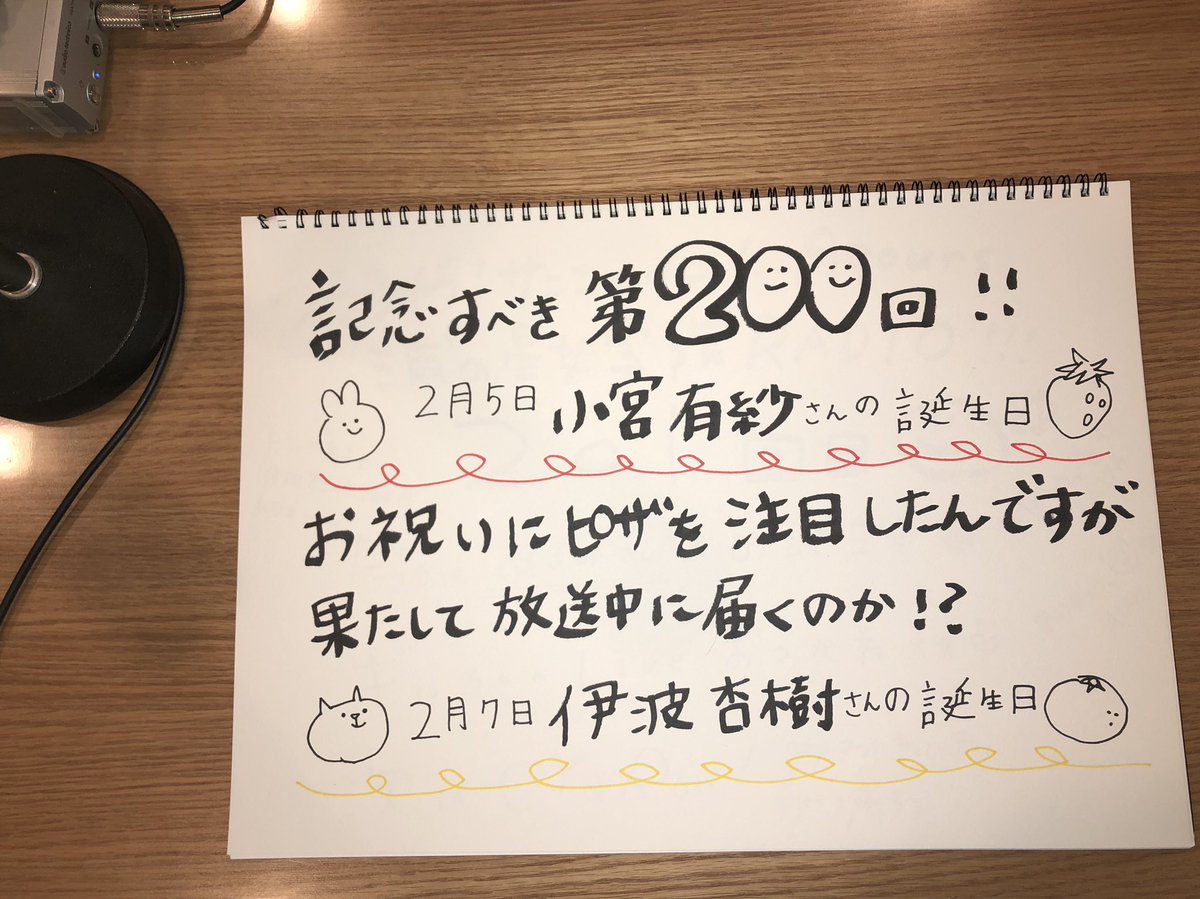 audio-technica
記念すべき第200回!!
2月5日 小宮有紗さんの誕生日
お祝いにピザを注目したんですが
果たして放送中に届くのか!?
2月7日 伊波杏樹さんの誕生日